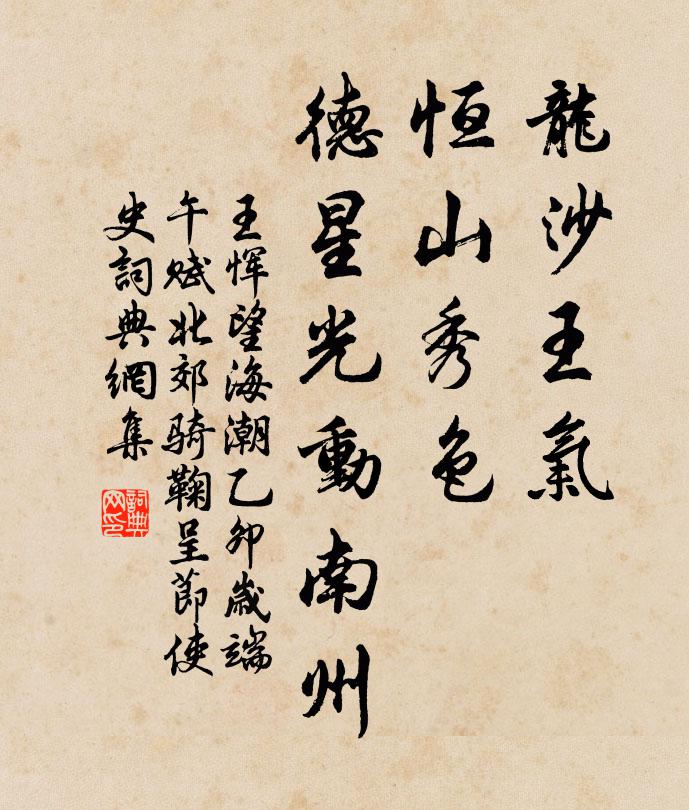 龍沙王氣
恒山秀色
德星光動南州
王惲望海潮乙卯歲端
午賦北郊騎鞠呈節使
史詞典網集
詞典網印